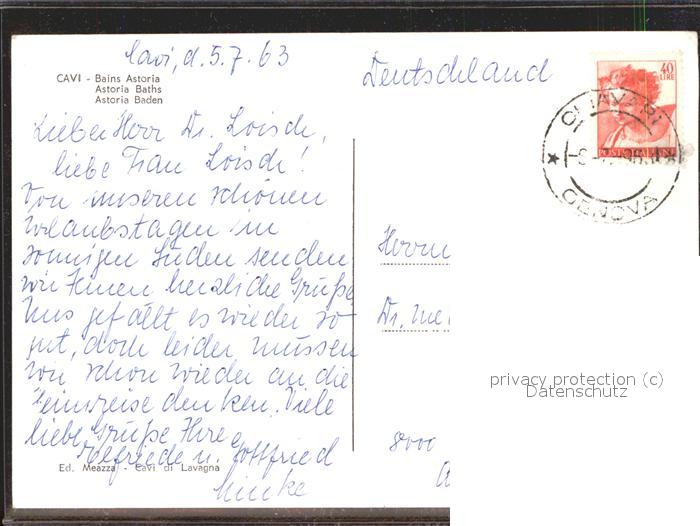 Cavi, d. 5.7.63
CAVI - Bains Astoria
Astoria Baths
Astoria Baden
Deutschland
40
LIRE
CHIAVARI
GENOVA
Lieber Herr Dr. Loisch,
liebe Frau Loisch!
Von unseren schönen
Urlaubstagen im
sonnigen Süden senden
wir Ihnen herzliche Grüße.
Uns gefällt es wieder so
gut, doch leider müssen
wir schon wieder an die
Heimreise denken. Viele
liebe Grüße Ihre
Elfriede u. Gottfried
Ed. Meazza - Cavi di Lavagna
Herrn
Dr. me
8000
privacy protection (c)
Datenschutz